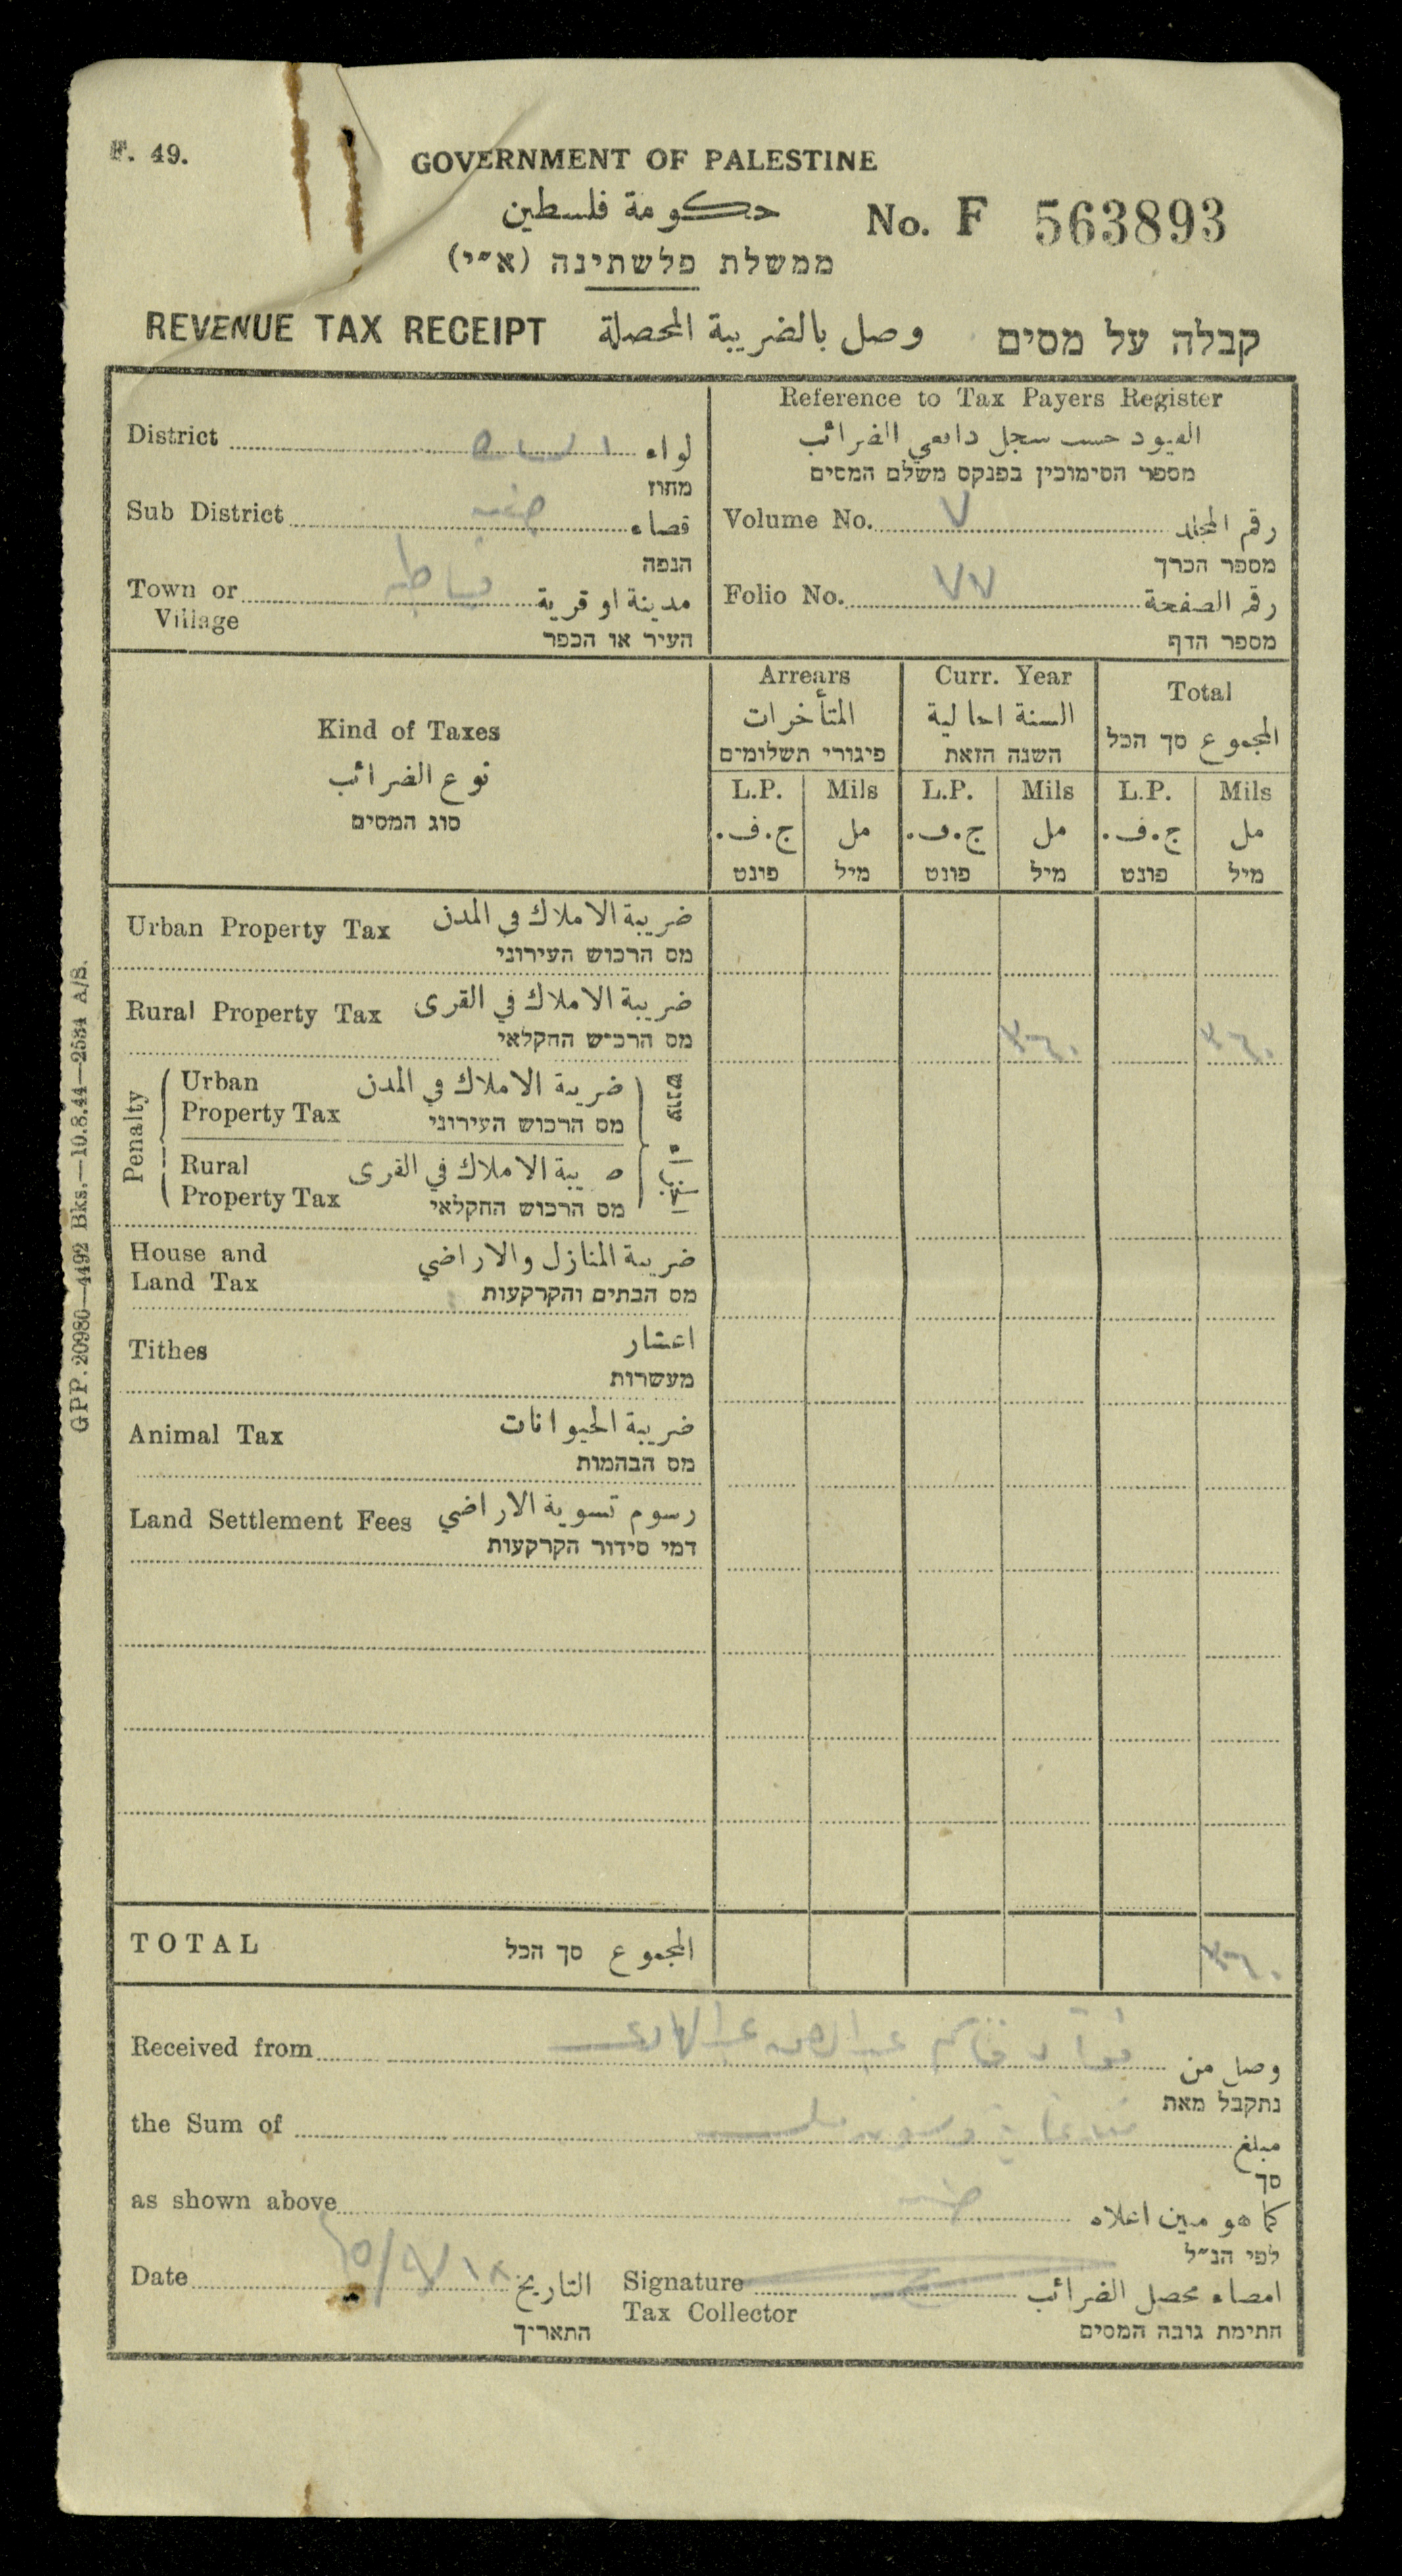 F. 49.
GOVERNMENT OF PALESTINE
حكومة فلسطين
No. F 563893
ממשלת פלשתינה (א״י)
REVENUE TAX RECEIPT وصل بالضريبة المحصلة קבלה על מסים
District لواء
מחוז
Sub District قضاء
הנפה
Town or Village مدينة او قرية
העיר או הכפר
Reference to Tax Payers Register
القيود حسب سجل دافعي الضرائب
מספר הסימוכין בפנקס משלם המסים
Volume No. ٧ رقم المجلد
מספר הכרך
Folio No. ٧٧ رقم الصفحة
מספר הדף
Kind of Taxes
نوع الضرائب
סוג המסים
Arrears
المتأخرات
פיגורי תשלומים
Curr. Year
السنة الحالية
השנה הזאת
Total
المجموع סך הכל
L.P. Mils L.P. Mils L.P. Mils
ج.ف. مل ج.ف. مل ج.ف. مل
פונט מיל פונט מיל פונט מיל
Urban Property Tax ضريبة الاملاك في المدن
מס הרכוש העירוני
Rural Property Tax ضريبة الاملاك في القرى
מס הרכוש החקלאי
Penalty
Urban Property Tax ضريبة الاملاك في المدن
מס הרכוש העירוני
עונש
Rural Property Tax ضريبة الاملاك في القرى
מס הרכוש החקלאי
House and Land Tax ضريبة المنازل والاراضي
מס הבתים והקרקעות
Tithes اعشار
מעשרות
Animal Tax ضريبة الحيوانات
מס הבהמות
Land Settlement Fees رسوم تسوية الاراضي
דמי סידור הקרקעות
TOTAL المجموع סך הכל
Received from وصل من
נתקבל מאת
the Sum of مبلغ
סך
as shown above كما هو مبين اعلاه
לפי הנ״ל
Date التاريخ
התאריך
Signature Tax Collector امضاء محصل الضرائب
חתימת גובה המסים
GPP. 20980—4492 Bks.—10.8.44—2534 A/S.